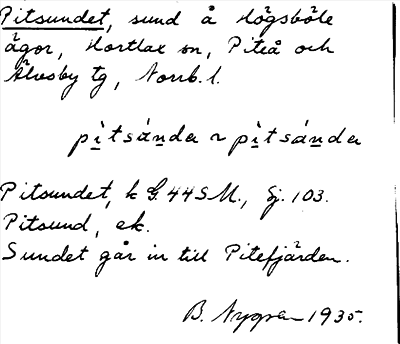 Pitsundet, sund å Högsböle
ägor, Hortlax sn, Piteå och
Älvsby tg, Norrb. l.
pìtsándɐ ~ pìtsándɐ
Pitsundet, k G. 44 S M., Sj. 103.
Pitsund, ek.
Sundet går in till Pitefjärden.
B. Nygren 1935.